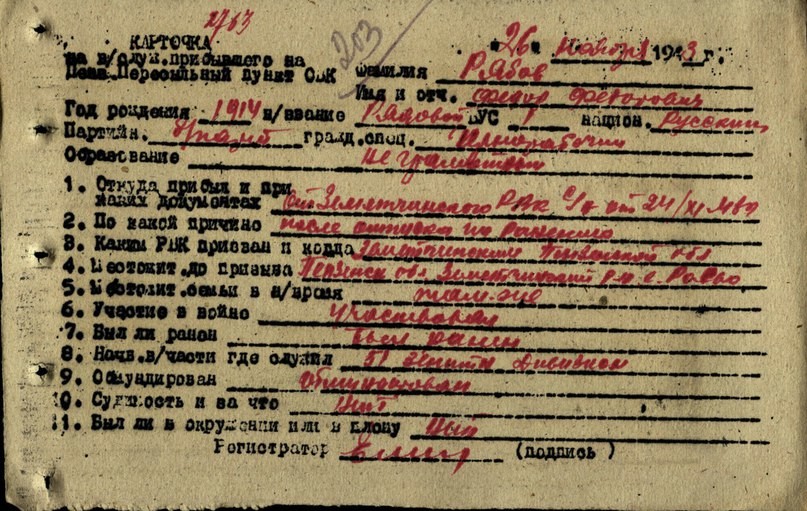 2763
203
КАРТОЧКА "26" ноября 1943 г.
на в/служ.прибывшего на
Пенз.Пересыльный пункт СВК Фамилия Рябов
Имя и отч. Федор Федорович
Год рождения 1914 в/звание Рядовой ВУС 1 национ. Русский
Партийн. гражд.спец. Чернорабочий
Образование не грамотный
1. Откуда прибыл и при
каких документах От Земетчинского РВК с/о от 24/XI
2. По какой причине после отпуска по ранению
3. Каким РВК призван и когда Земетчинским Пензенской обл
4. Местожит.до призыва Пензенск обл Земетчинский р-н с.
5. Местожит.семьи в н/время там-же
6. Участие в войне участвовал
7. Был ли ранен был ранен
8. Наим.в/части где служил 51 дивизион
9. Обмундирован обмундирован
10. Судимость и за что нет
11. Был ли в окружении или в плену нет
Регистратор (подпись)